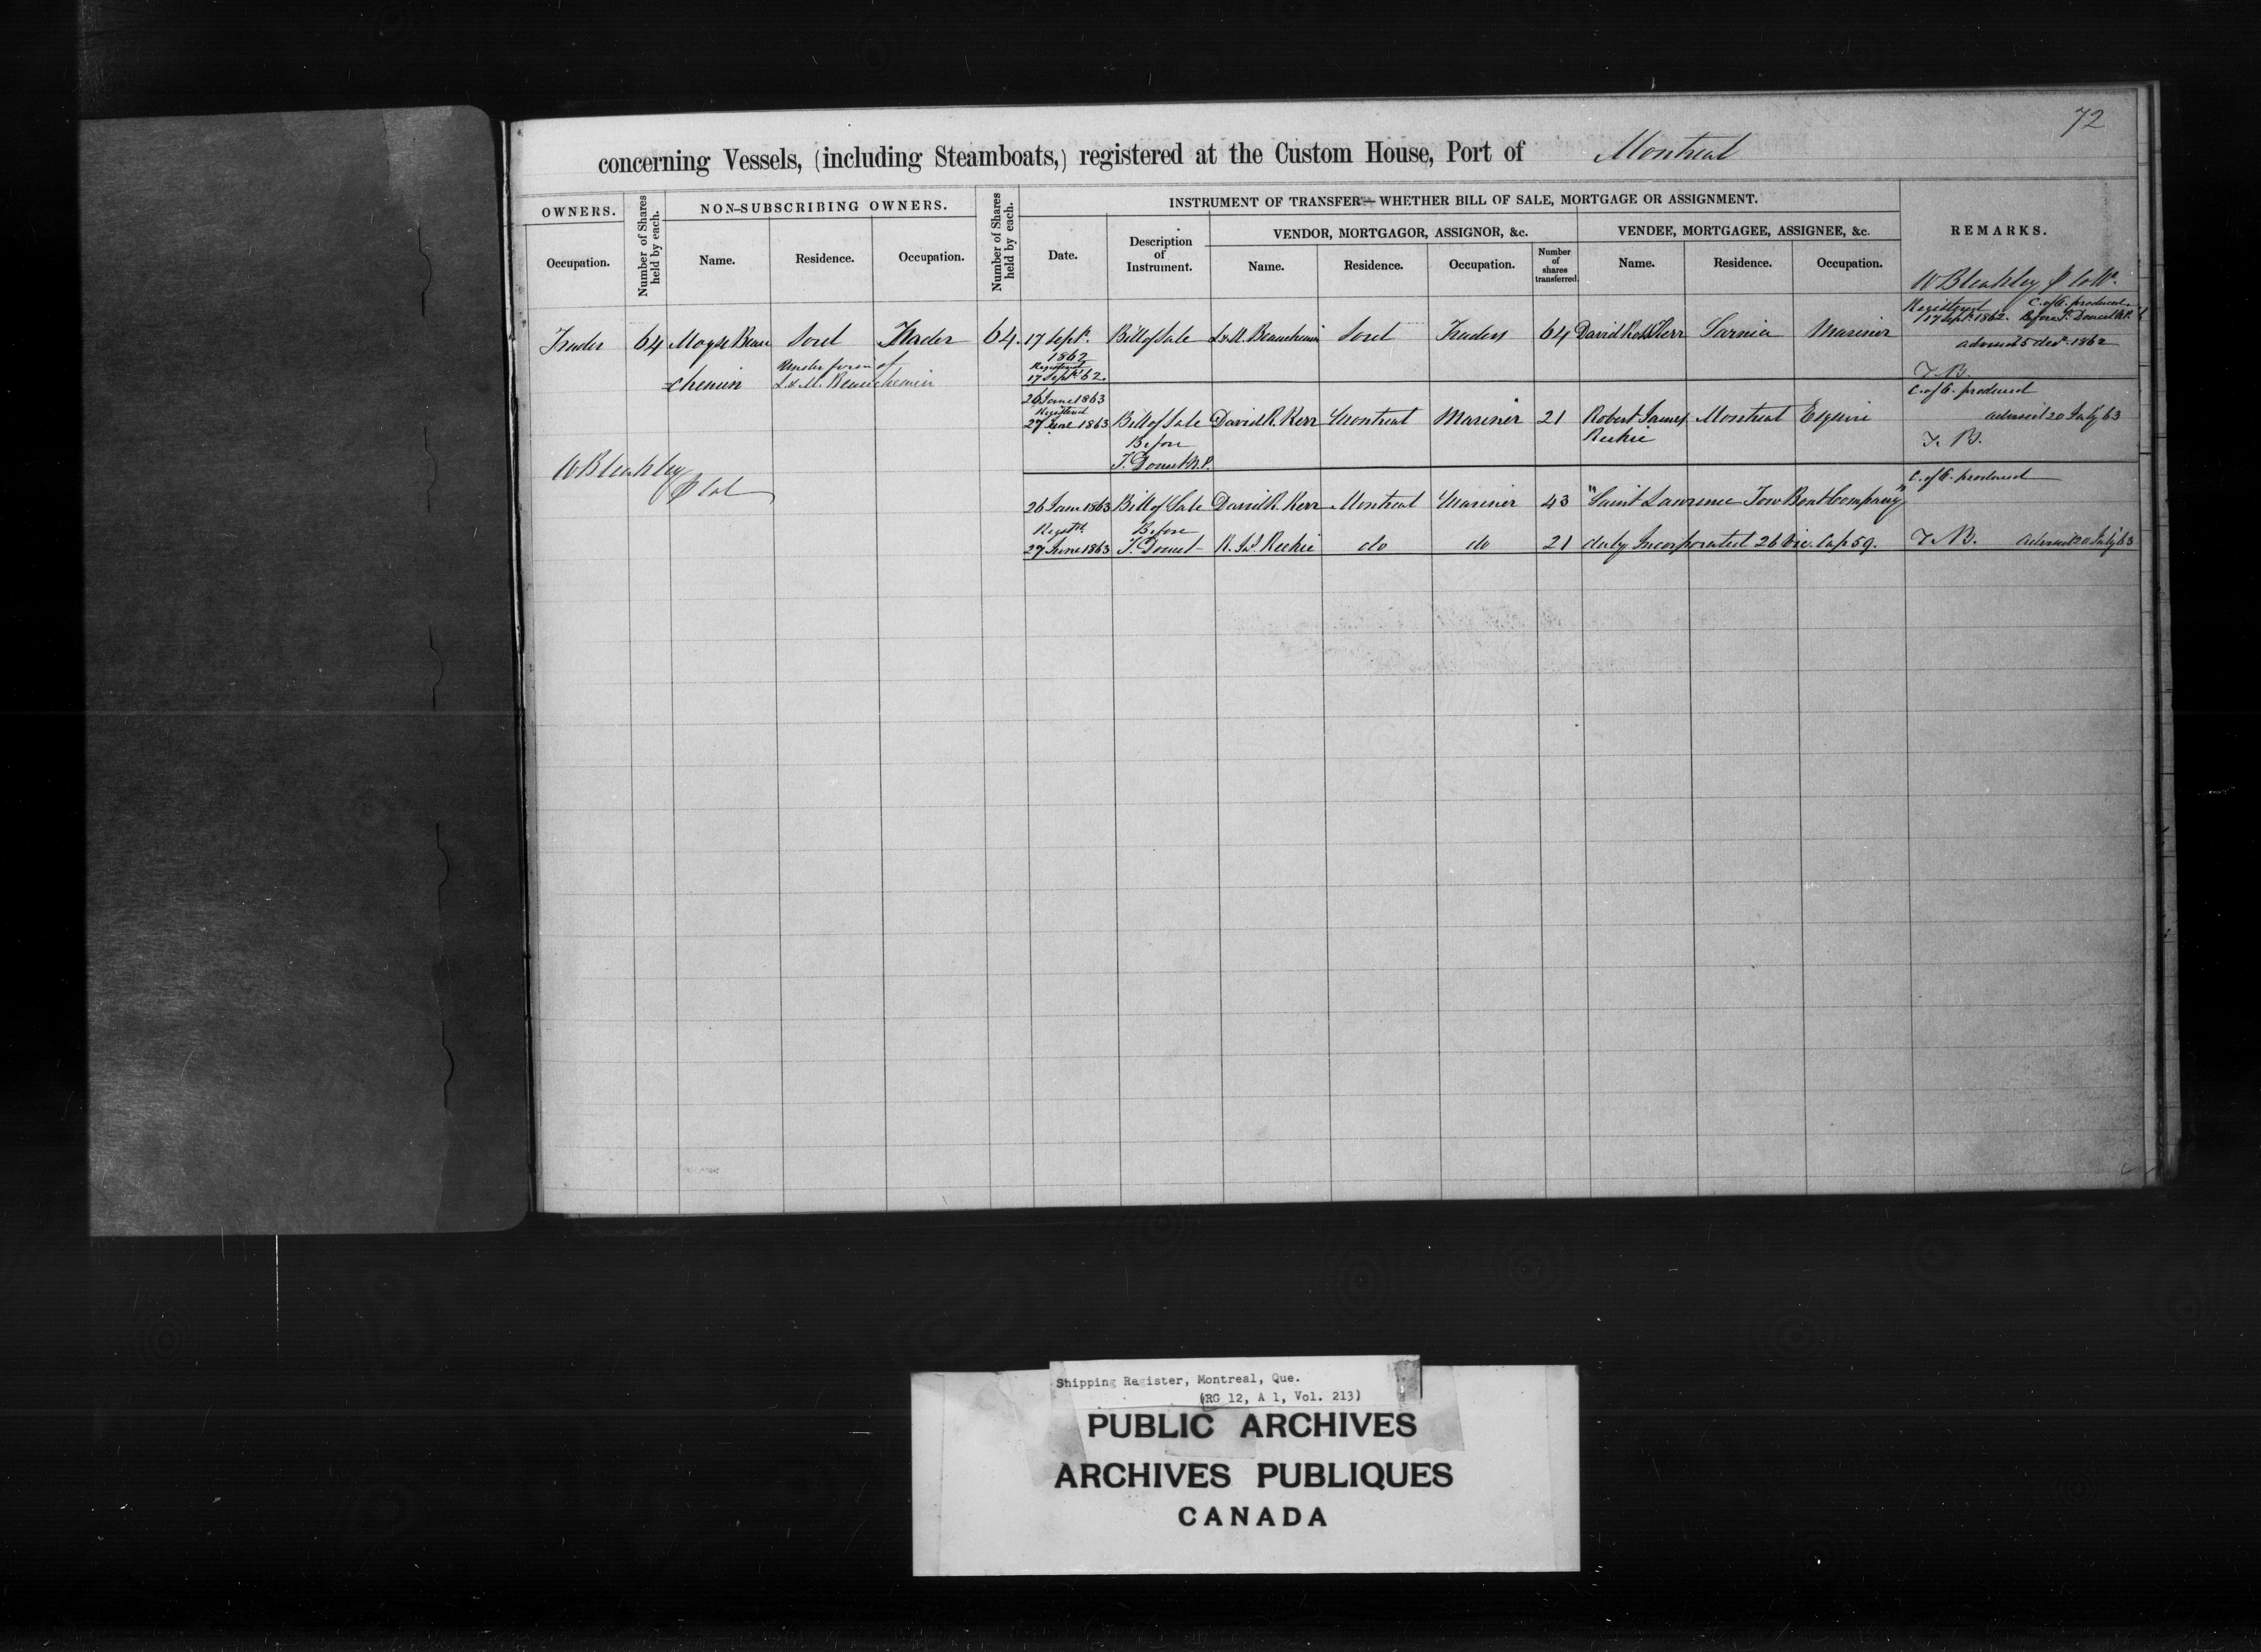 72
concerning Vessels, (including Steamboats,) registered at the Custom House, Port of Montreal
OWNERS.
Occupation.
Number of Shares held by each.
NON-SUBSCRIBING OWNERS.
Name. Residence. Occupation.
Number of Shares held by each.
INSTRUMENT OF TRANSFER—WHETHER BILL OF SALE, MORTGAGE OR ASSIGNMENT.
Date.
Description of Instrument.
VENDOR, MORTGAGOR, ASSIGNOR, &c.
Name. Residence. Occupation.
Number of shares transferred.
VENDEE, MORTGAGEE, ASSIGNEE, &c.
Name. Residence. Occupation.
REMARKS.
W Bleakley
Registered C. of E. produced
17 Sept. 1862. Before T. Doucet N.P.
Trader 64 Moyse Beau Sorel Trader 64 17 Sept. Bill of Sale L & M. Beauchemin Sorel Traders 64 David Ross Kerr Sarnia Mariner
1862
advised 5 Decr. 1862
Under firm of
chemin L. & M. Beauchemin
Registered
17 Sept. 62
T. B.
26 June 1863
C. of E. produced
Registered
27 June 1863 Bill of Sale David R. Kerr Montreal Mariner 21 Robert James Montreal Esquire advised 20 July 63
Before Reekie T. B.
T. Doucet N.P.
W Bleakley
C. of E. produced
26 June 1863 Bill of Sale David R. Kerr Montreal Mariner 43 "Saint Lawrence Tow Boat Company"
Registd. Before
27 June 1863 T. Doucet R. Js. Reekie do do 21 duly Incorporated 26 Vic. Cap 59. T. B. advised 20 July 63
Shipping Register, Montreal, Que.
(RG 12, A 1, Vol. 213)
PUBLIC ARCHIVES
ARCHIVES PUBLIQUES
CANADA